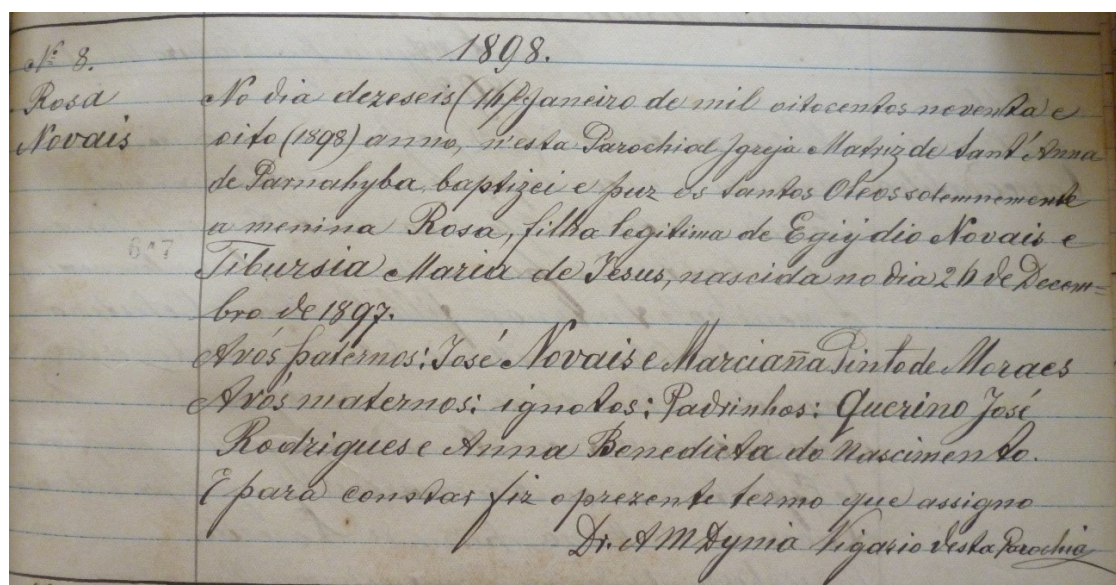 1898.
Nº 8.
Rosa
Novais
No dia dezeseis (16) Janeiro de mil oitocentos noventa e
oito (1898) anno, n'esta Parochial Igreja Matriz de Sant'Anna
de Parnahyba, baptizei e puz os Santos Oleos solemnemente
a menina Rosa, filha legitima de Egiydio Novais e
617
Tibursia Maria de Jesus, nascida no dia 26 de Decem=
bro de 1897.
Avós paternos: José Novais e Marciaña Pinto de Moraes
Avós maternos: ignotos: Padrinhos: Querino José
Rodrigues e Anna Benedicta do Nascimento.
E para constar fiz o prezente termo que assigno
Dr. A M Vigario desta Parochia